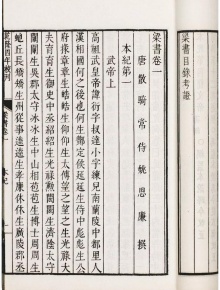 梁書目錄考證
梁書卷一
唐散騎常侍姚思廉撰
本紀第一
武帝上
高祖武皇帝諱衍字叔達小字練兒南蘭陵中都里人
漢相國何之後也何生酇定侯延延生侍中彪彪生公
府掾章章生皓皓生仰仰生太傅望之望之生光祿大
夫育育生御史中丞紹紹生光祿勳閎閎生濟陰太守
闡闡生吳郡太守冰冰生中山相苞苞生博士周周生
蛇丘長矯矯生州從事逵逵生孝廉休休生廣陵郡丞
乾隆四年校刊
梁書卷一 本紀